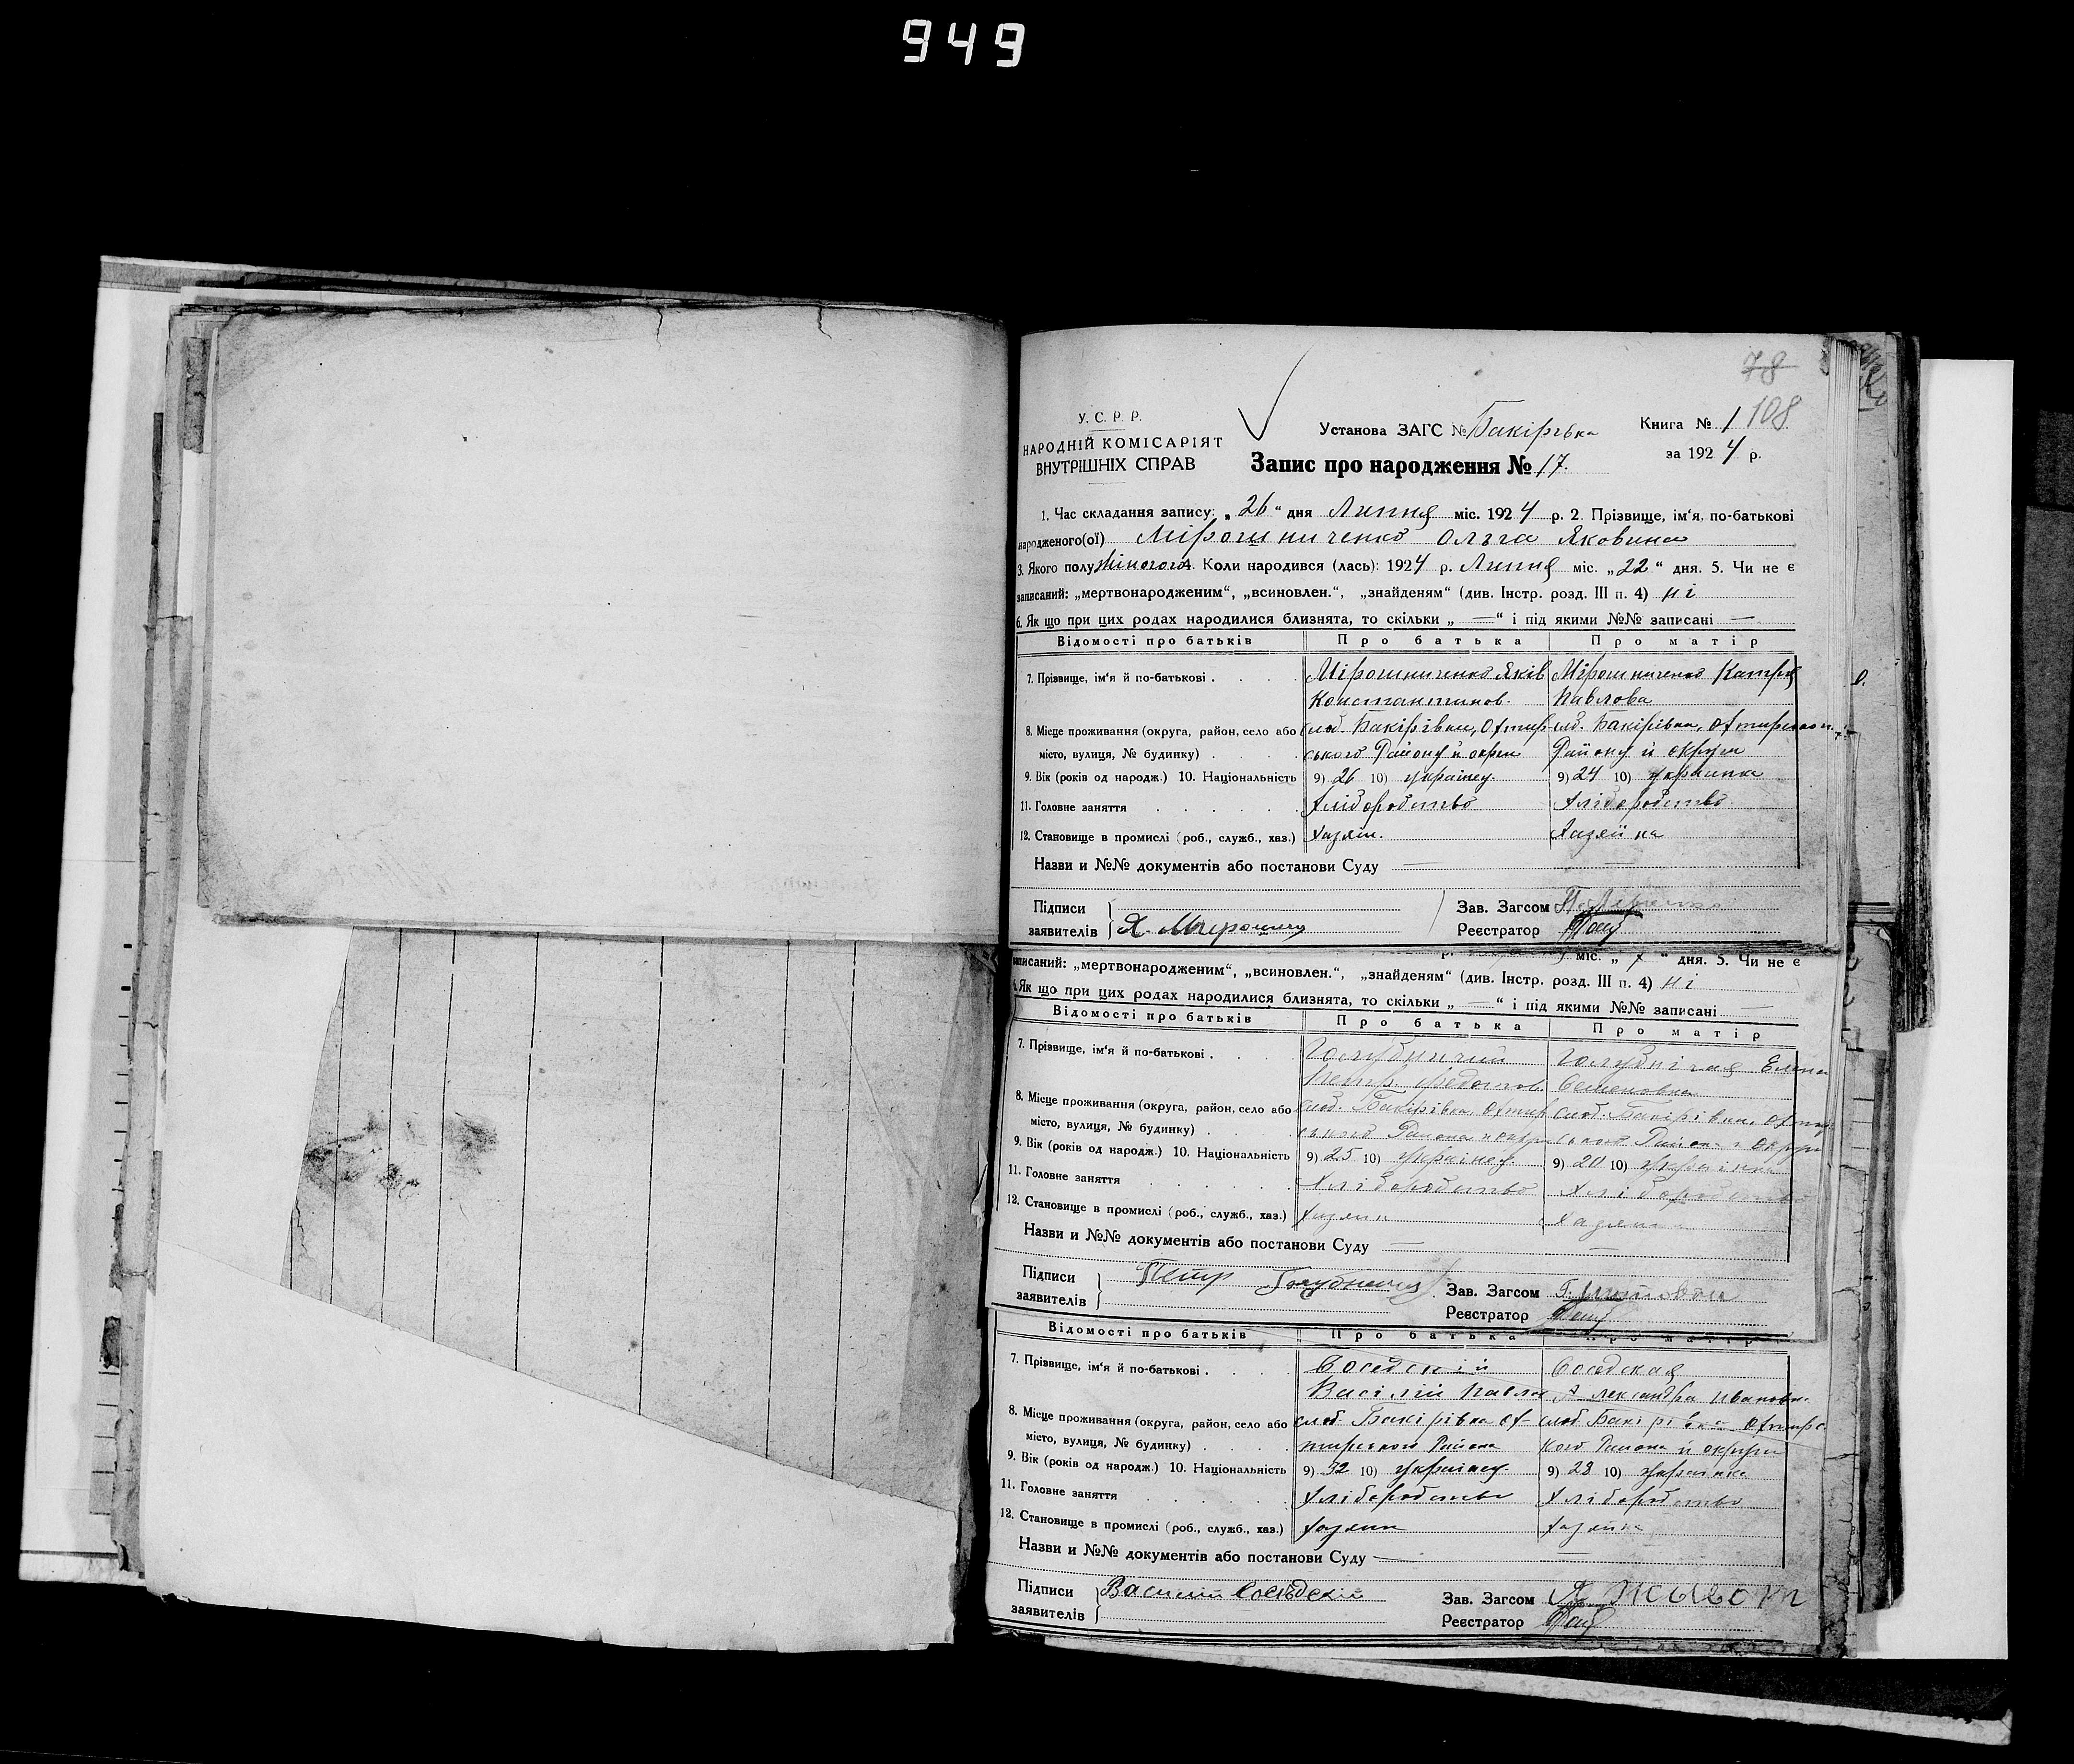 949
78
108
У. С. Р. Р.
НАРОДНІЙ КОМІСАРІЯТ
ВНУТРІШНІХ СПРАВ
Установа ЗАГС № Бакірівська
Книга № 1
за 1924 р.
Запис про народження № 17.
1. Час складання запису: „26“ дня Липня міс. 1924 р. 2. Прізвище, ім'я, по-батькові
народженого(ої) Мірошниченко Ольга Яковина
3. Якого полу жіночого 4. Коли народився (лась): 1924 р. Липня міс. „22“ дня. 5. Чи не є
записаний: „мертвонародженим“, „всиновлен.“, „знайденям“ (див. Інстр. розд. III п. 4) ні
6. Як що при цих родах народилися близнята, то скільки „—“ і під якими №№ записані —
Відомості про батьків Про батька Про матір
7. Прізвище, ім'я й по-батькові . Мірошниченко Яків Мірошниченко Катря
Константинов. Павлова
8. Місце проживання (округа, район, село або слоб. Бакірівки, Охтир слоб. Бакірівка, Охтирськ
місто, вулиця, № будинку) . ського Району й округи Району й округи
9. Вік (років од народж.) 10. Національність 9) 26 10) українец 9) 24 10) українка
11. Головне заняття Хліборобство Хліборобство
12. Становище в промислі (роб., служб., хаз.) Хазяін. Хазяйка
Назви и №№ документів або постанови Суду —
Підписи
заявителів Я. Мирошнич
Зав. Загсом
Реєстратор
р. міс. „7“ дня. 5. Чи не є
записаний: „мертвонародженим“, „всиновлен.“, „знайденям“ (див. Інстр. розд. III п. 4) ні
6. Як що при цих родах народилися близнята, то скільки „—“ і під якими №№ записані —
Відомості про батьків Про батька Про матір
7. Прізвище, ім'я й по-батькові . Голубничий Голубнічая Елена
Петр. Федотов. Семеновна
8. Місце проживання (округа, район, село або слоб. Бакірівка, Охтир слоб. Бакірівки, Охтир
місто, вулиця, № будинку) . ського Района и округи ського Района и округи
9. Вік (років од народж.) 10. Національність 9) 25 10) українец. 9) 20 10) українка
11. Головне заняття Хліборобство Хліборобство
12. Становище в промислі (роб., служб., хаз.) Хазяин Хазяйка
Назви и №№ документів або постанови Суду —
Підписи
заявителів Петр Голубничий
Зав. Загсом
Реєстратор
Відомості про батьків Про батька Про матір
7. Прізвище, ім'я й по-батькові . Соседскій Соседская
Васілій Павлов Александра Ивановн.
8. Місце проживання (округа, район, село або слоб. Бакірівка Ох слоб. Бакірівка Охтирс
місто, вулиця, № будинку) . тирського Района кого Района й округи
9. Вік (років од народж.) 10. Національність 9) 32 10) українец. 9) 28 10) українка
11. Головне заняття Хліборобство Хліборобство
12. Становище в промислі (роб., служб., хаз.) Хазяин Хазяйка
Назви и №№ документів або постанови Суду —
Підписи
заявителів Василий Соседский
Зав. Загсом Я. Живот
Реєстратор